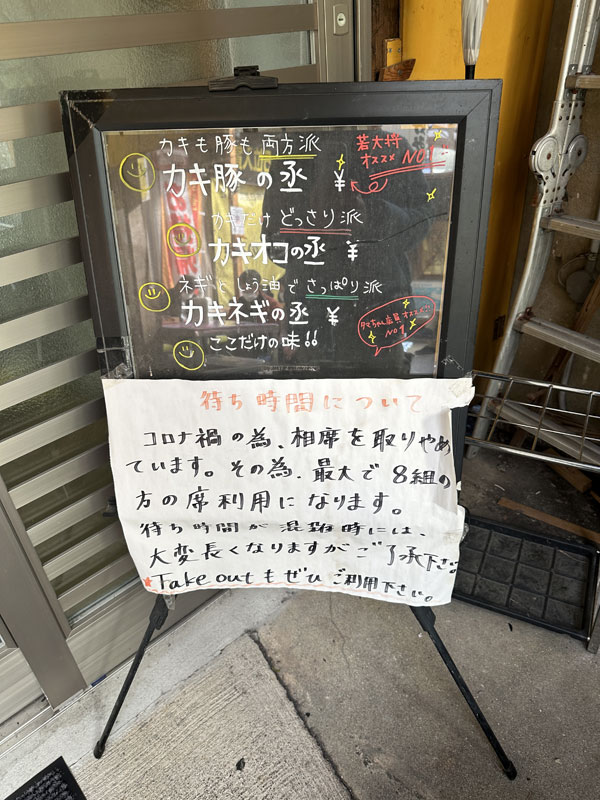 カキも豚も両方派
若大将
オススメ NO1!!
カキ豚の丞 ¥
カキだけどっさり派
カキオコの丞 ¥
ネギとしょう油でさっぱり派
カキネギの丞 ¥
タマちゃん店員オススメ
NO1
ここだけの味!!
待ち時間について
コロナ禍の為、相席を取りやめ
ています。その為、最大で8組の
方の席利用になります。
待ち時間が混雑時には、
大変長くなりますがご了承下さい。
★Take outもぜひご利用下さい。